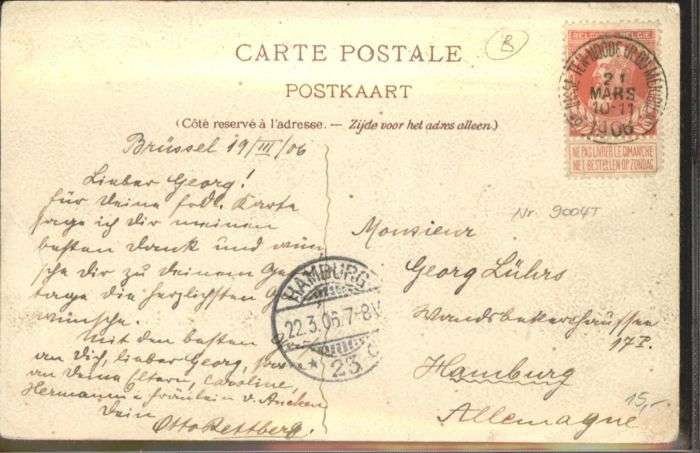 CARTE POSTALE
POSTKAART
(Côté reservé à l'adresse. — Zijde voor het adres alleen.)
B
BELGIQUE BELGIE
21
MARS
10-11
1906
NE PAS LIVRER LE DIMANCHE
NIET BESTELLEN OP ZONDAG
Brüssel 19/III/06
Lieber Georg!
Für Deine frdl. Karte
sage ich Dir meinen
besten Dank und wün
sche Dir zu Deinem Ge
tage die herzlichsten
wünsche.
Mit den besten
an Dich, lieber Georg,
an Deine Eltern, Caroline,
Hermann & Fräulein v.
Dein
Otto Rettberg.
HAMBURG
22.3.06.7-8V
* 23 c
Nr. 9004T
Monsieur
Georg Lührs
Wandsbekerchaussee
17 I.
Hamburg
Allemagne
15,-